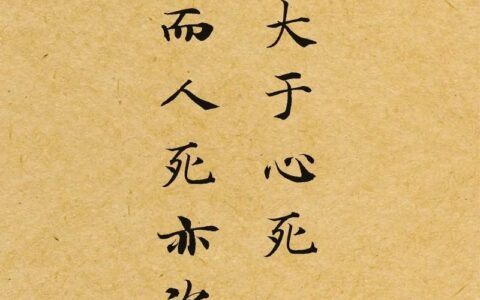 大于心死
而人死亦